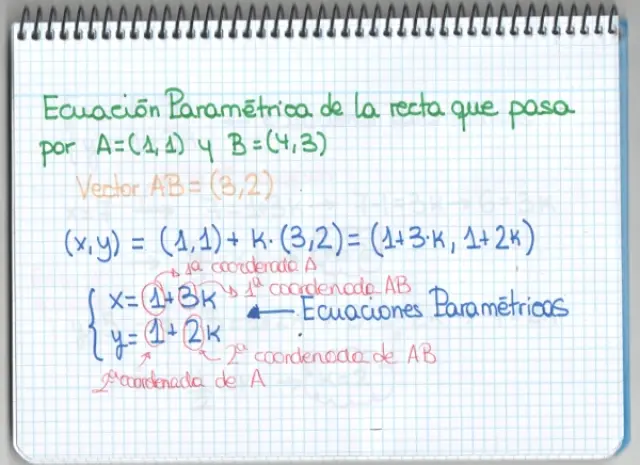 Ecuación Paramétrica de la recta que pasa
por A=(1,1) y B=(4,3)
Vector AB=(3,2)
(x,y) = (1,1)+ k·(3,2)=(1+3·k, 1+2k)
1ª coordenada A
x=1+3k
1ª coordenada AB
Ecuaciones Paramétricas
y=1+2k
2ª coordenada de AB
2ª coordenada de A